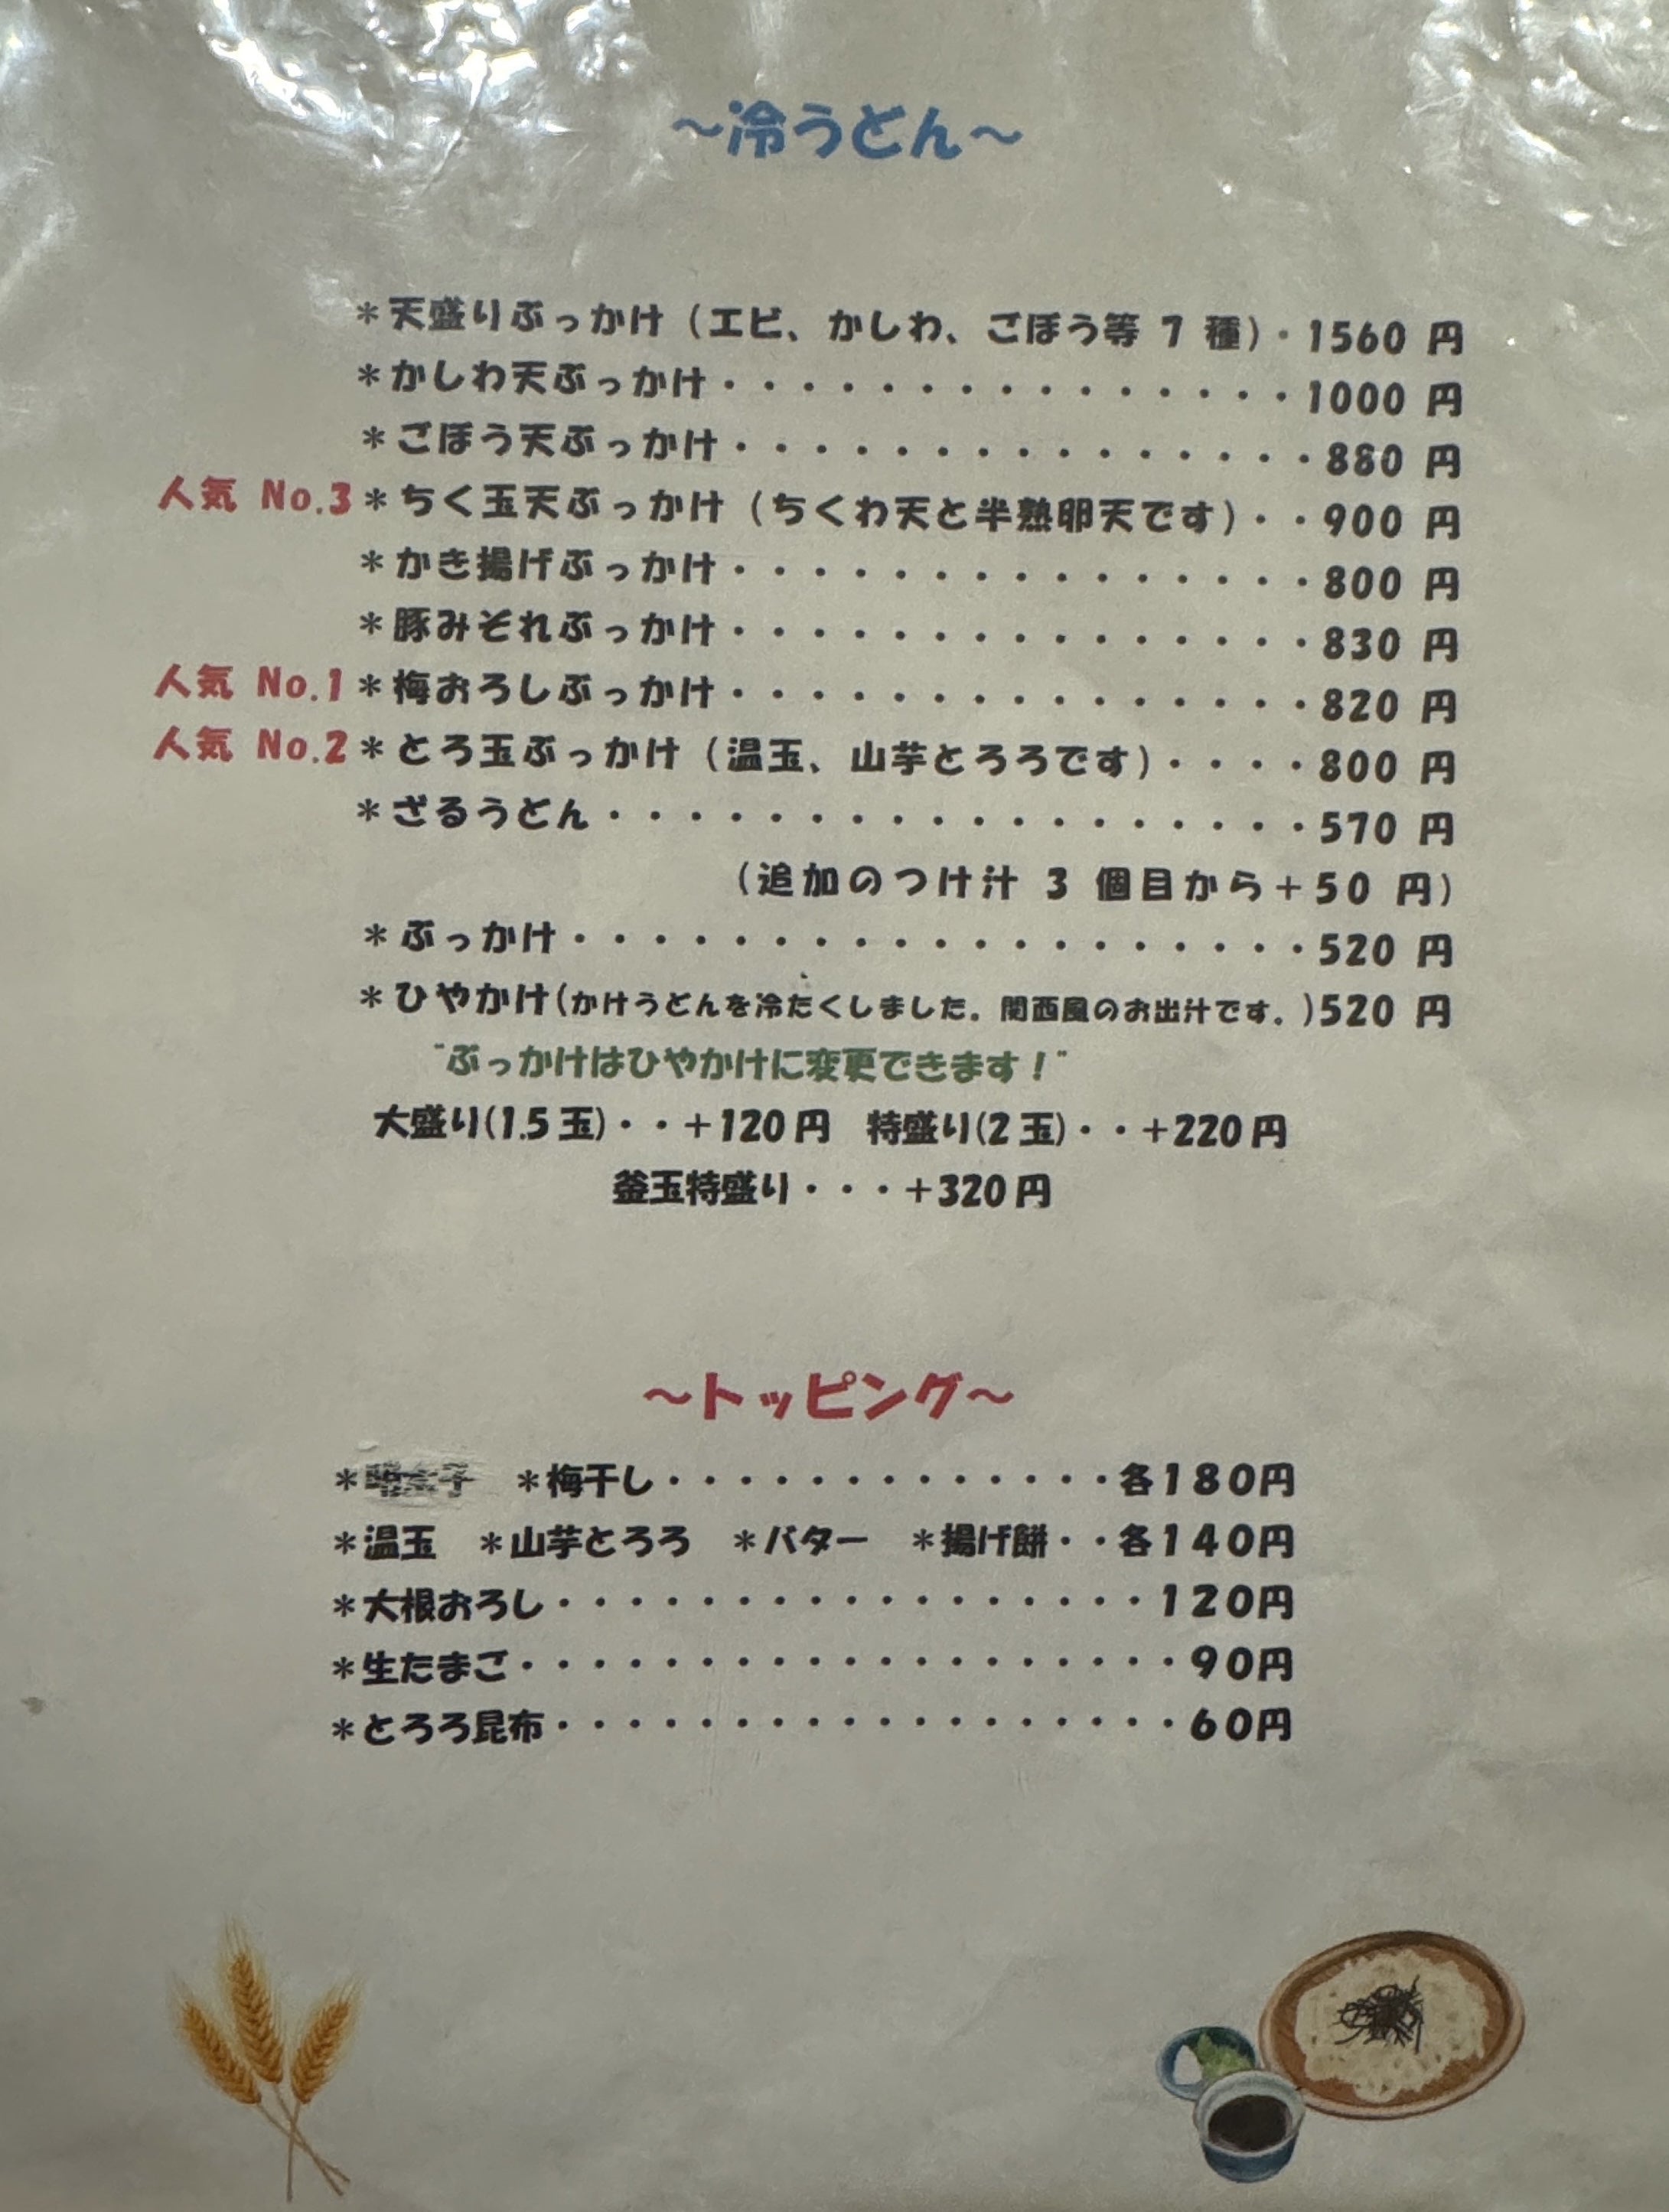 ～冷うどん～
＊天盛りぶっかけ（エビ、かしわ、ごぼう等 7 種）・1560 円
＊かしわ天ぶっかけ・・・・・・・・・・・・・・・1000 円
＊ごぼう天ぶっかけ・・・・・・・・・・・・・・・880 円
人気 No.3＊ちく玉天ぶっかけ（ちくわ天と半熟卵天です）・・900 円
＊かき揚げぶっかけ・・・・・・・・・・・・・・・800 円
＊豚みぞれぶっかけ・・・・・・・・・・・・・・・830 円
人気 No.1＊梅おろしぶっかけ・・・・・・・・・・・・・・・820 円
人気 No.2＊とろ玉ぶっかけ（温玉、山芋とろろです）・・・・800 円
＊ざるうどん・・・・・・・・・・・・・・・・・・570 円
（追加のつけ汁 3 個目から＋50 円）
＊ぶっかけ・・・・・・・・・・・・・・・・・・・520 円
＊ひやかけ(かけうどんを冷たくしました。関西風のお出汁です。)520 円
"ぶっかけはひやかけに変更できます！"
大盛り(1.5 玉)・・＋120 円 特盛り(2 玉)・・＋220 円
釜玉特盛り・・・＋320 円
～トッピング～
＊ ＊梅干し・・・・・・・・・・・・・各180円
＊温玉 ＊山芋とろろ ＊バター ＊揚げ餅・・各140円
＊大根おろし・・・・・・・・・・・・・・・・・120円
＊生たまご・・・・・・・・・・・・・・・・・・・90円
＊とろろ昆布・・・・・・・・・・・・・・・・・・60円